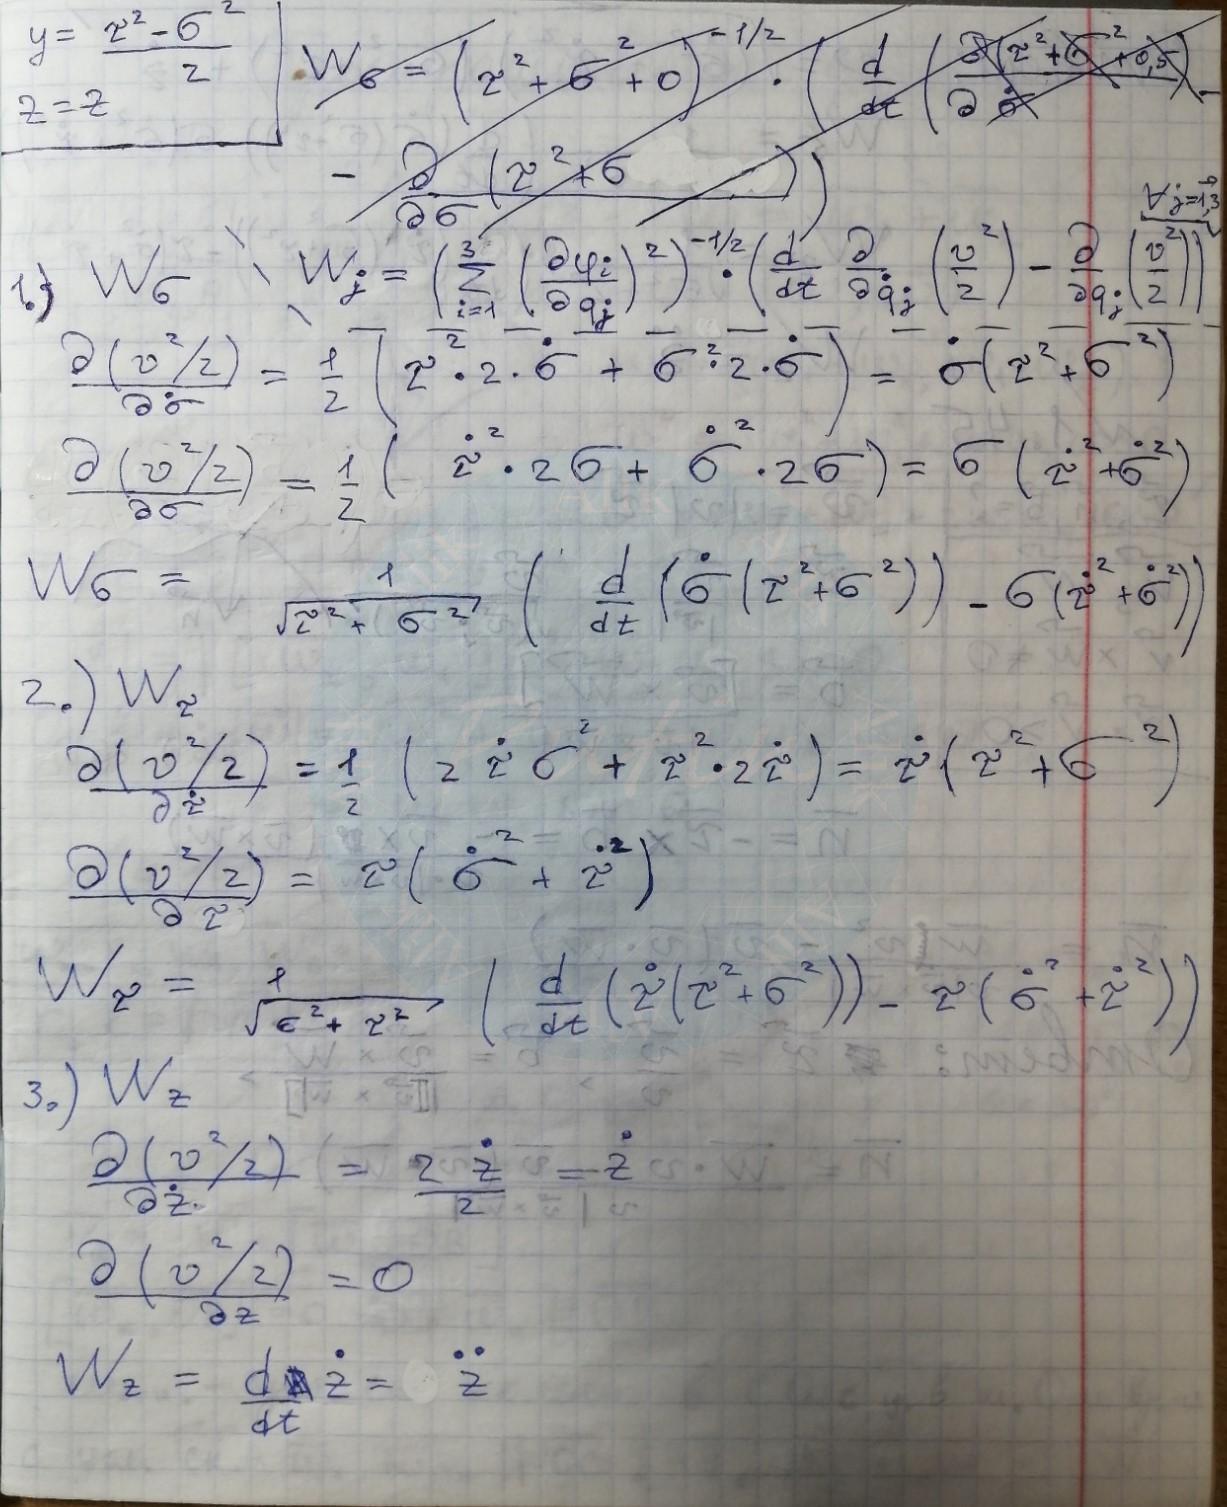 y = (τ² - σ²)/2
z = z
W_σ = (τ² + σ² + 0)^(-1/2) · (d/dt (∂(τ² + σ² + 0,5)/∂σ̇) -
- ∂/∂σ (τ² + σ ))
1.) W_σ \ W_j = (∑_{i=1}^{3} (∂φ_i/∂q_j)²)^(-1/2) · (d/dt ∂/∂q̇_j (v²/2) - ∂/∂q_j (v²/2)) ∀j=1,3
∂(v²/2)/∂σ̇ = 1/2 (τ²·2·σ̇ + σ²·2·σ̇) = σ̇(τ² + σ²)
∂(v²/2)/∂σ = 1/2 (τ̇²·2σ + σ̇²·2σ) = σ(τ̇² + σ̇²)
W_σ = 1/√(τ² + σ²) (d/dt (σ̇(τ² + σ²)) - σ(τ̇² + σ̇²))
2.) W_τ
∂(v²/2)/∂τ̇ = 1/2 (2τ̇σ² + τ²·2τ̇) = τ̇(τ² + σ²)
∂(v²/2)/∂τ = τ(σ̇² + τ̇²)
W_τ = 1/√(σ² + τ²) (d/dt (τ̇(τ² + σ²)) - τ(σ̇² + τ̇²))
3.) W_z
∂(v²/2)/∂ż = 2ż/2 = ż
∂(v²/2)/∂z = 0
W_z = d/dt ż = z̈